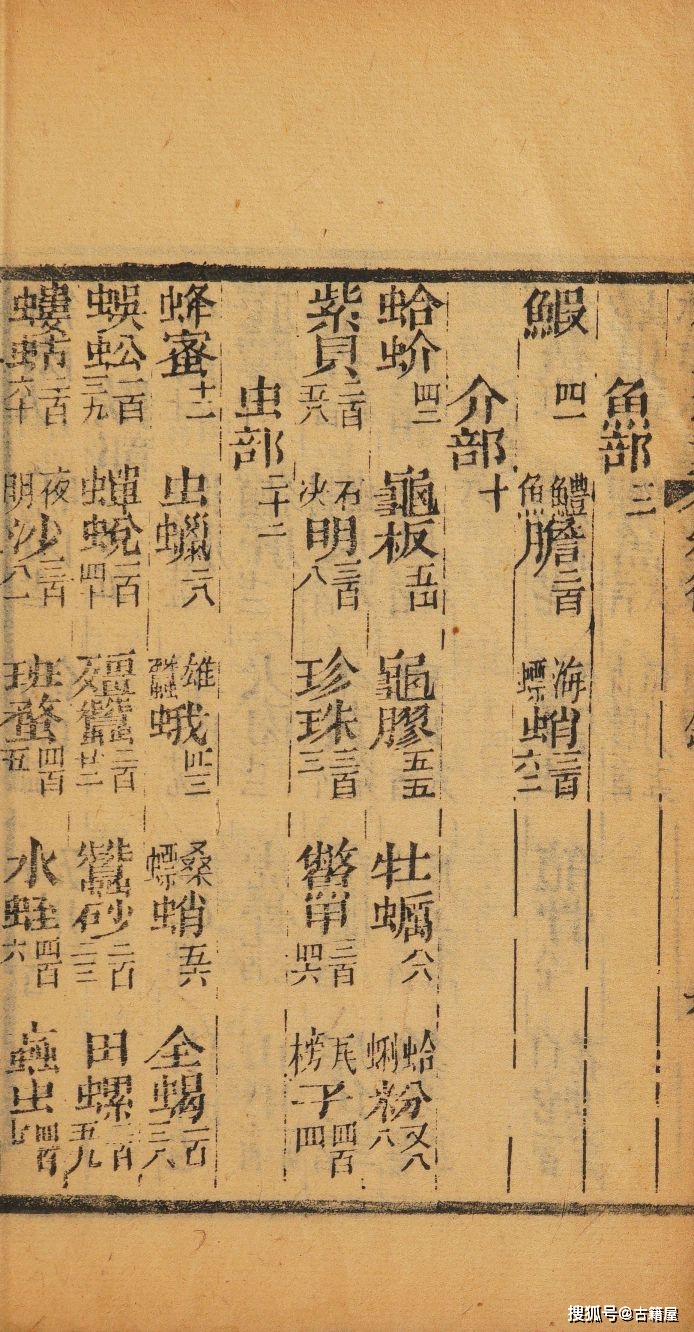 魚部 三
鰕 四一 鱧魚膽 二百 海螵蛸 三百六二
介部 十
蛤蚧 四三 龜板 五四 龜膠 五五 牡蠣 六六 蛤蜊粉 又八八
紫貝 二百五八 石决明 三百八 珍珠 三百三 鱉甲 三百四六 瓦子 四百四
虫部 二十二
蜂蜜 十二 虫蠟 二八 雄蠶蛾 三 桑螵蛸 五六 全蝎 一百三八
蜈蚣 一百三九 蟬蛻 一百四十 殭蠶 二百廿二 蠶砂 二百二三 田螺 二百五九
螻蛄 二百六十 夜明沙 三百八一 班蝥 四百五 水蛭 四百六 虫 四百七
搜狐号@古籍屋